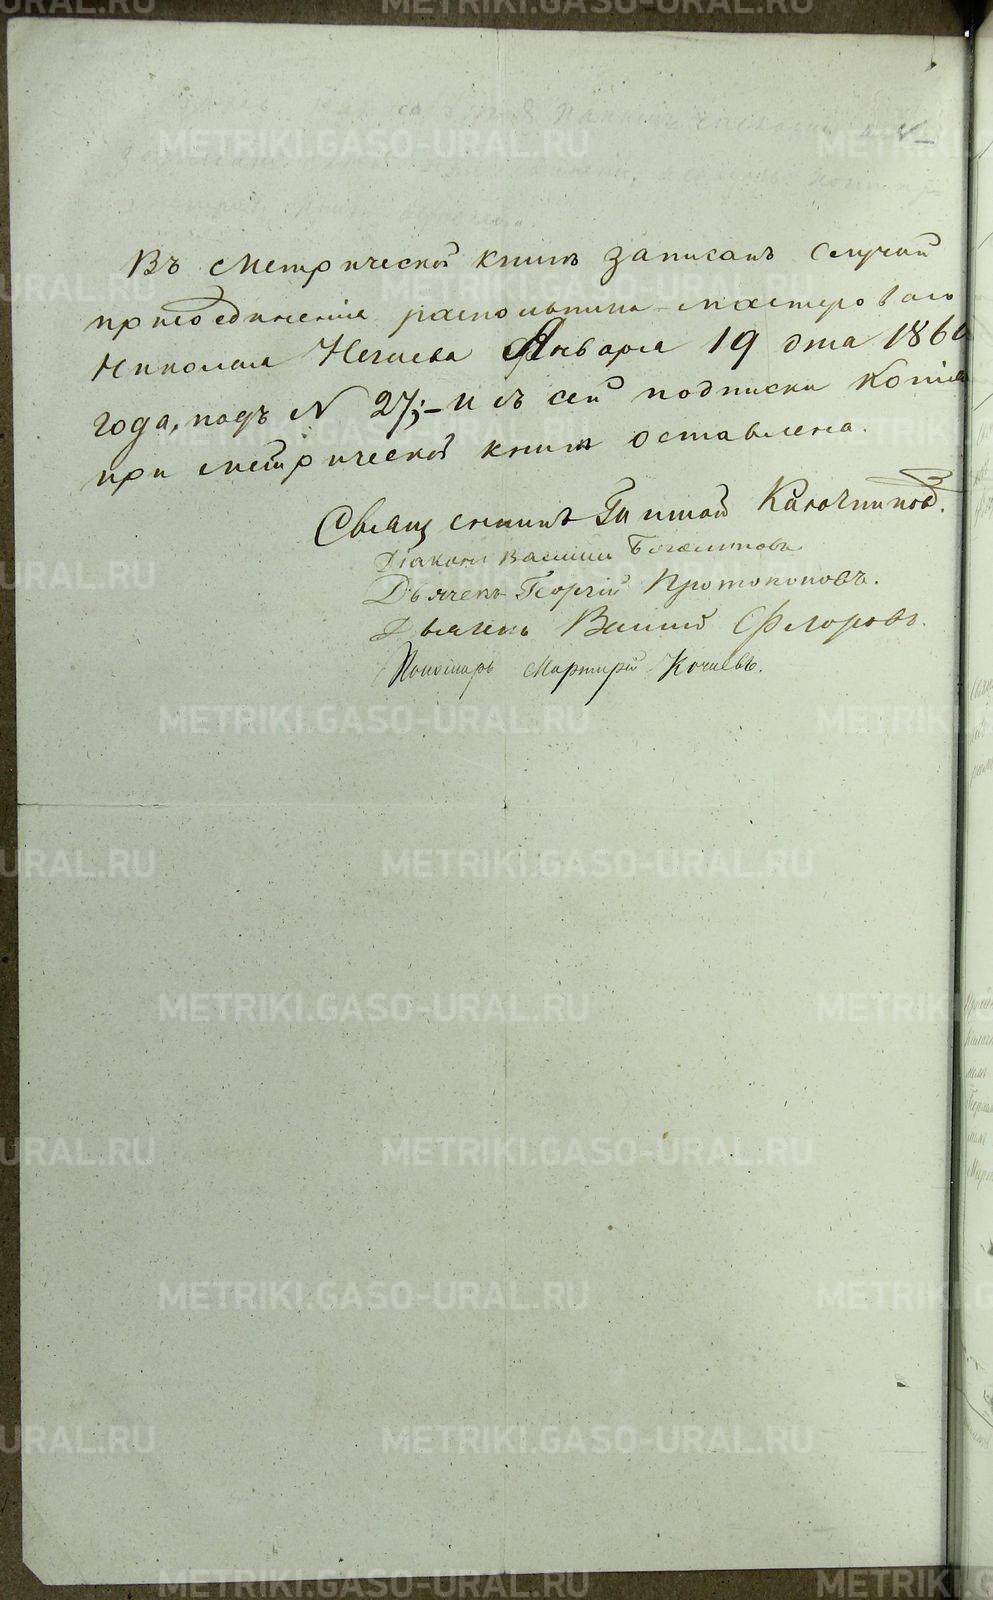 Въ Метрической книгѣ записанъ случай
присоединенія раскольника мастероваго
Николая Нечаева Января 19 дня 1860
года, подъ N 27; – и съ сей подписки копія
при метрической книгѣ оставлена.
Священникъ Ключниковъ.
Діаконъ Василій
Дьячекъ Георгій Протопоповъ.
Дьячекъ Василій Ѳедоровъ.
Пономарь Мартирій Кочневъ.
METRIKI.GASO-URAL.RU